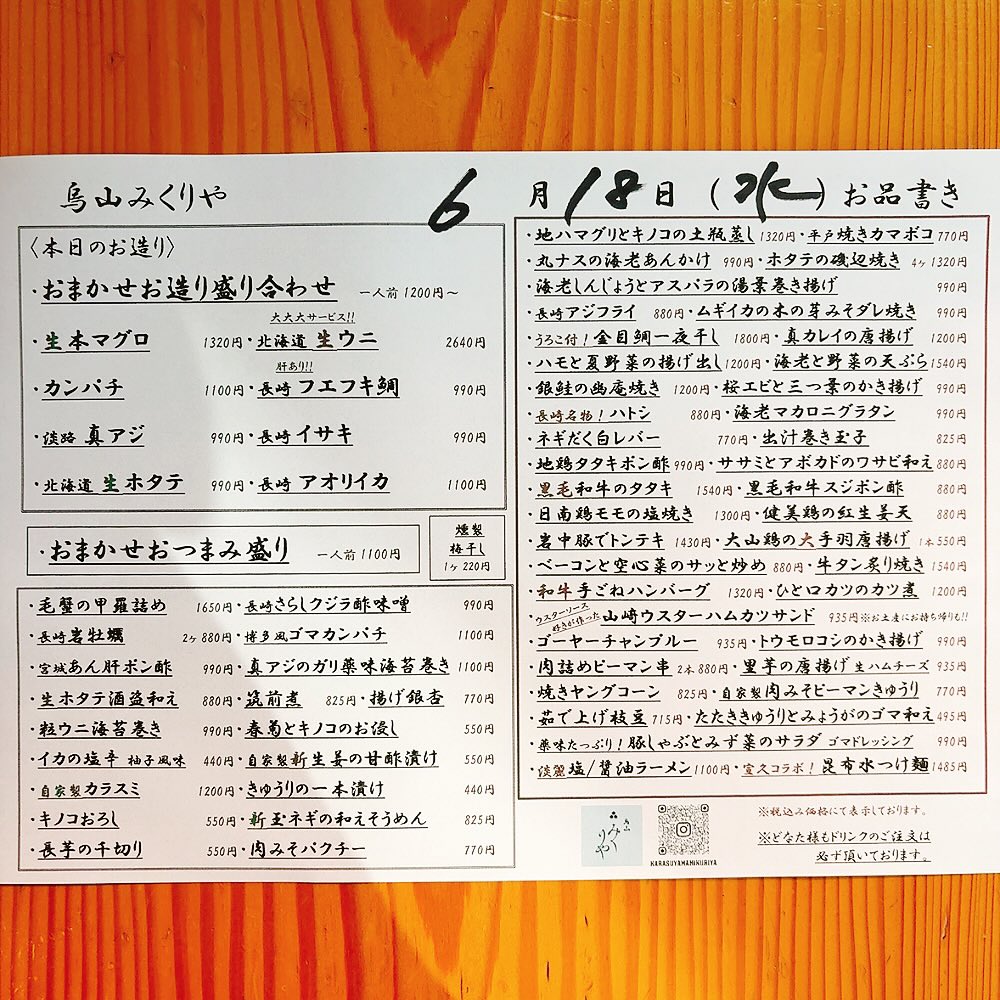 烏山みくりや 6月18日(水)お品書き
〈本日のお造り〉
・おまかせお造り盛り合わせ 一人前1200円〜
大大大サービス!!
・生本マグロ 1320円・北海道 生ウニ 2640円
肝あり!!
・カンパチ 1100円・長崎 フエフキ鯛 990円
・淡路 真アジ 990円・長崎 イサキ 990円
・北海道 生ホタテ 990円・長崎 アオリイカ 1100円
・おまかせおつまみ盛り 一人前1100円
燻製
梅干し
1ヶ220円
・毛蟹の甲羅詰め 1650円・長崎さらしクジラ酢味噌 990円
・長崎岩牡蠣 2ヶ880円・博多風ゴマカンパチ 1100円
・宮城あん肝ポン酢 990円・真アジのガリ薬味海苔巻き 1100円
・生ホタテ酒盗和え 880円・筑前煮 825円・揚げ銀杏 770円
・粒ウニ海苔巻き 990円・春菊とキノコのお浸し 550円
・イカの塩辛 柚子風味 440円・自家製新生姜の甘酢漬け 550円
・自家製カラスミ 1200円・きゅうりの一本漬け 440円
・キノコおろし 550円・新玉ネギの和えそうめん 825円
・長芋の千切り 550円・肉みそパクチー 770円
・地ハマグリとキノコの土瓶蒸し 1320円・平戸焼きカマボコ 770円
・丸ナスの海老あんかけ 990円・ホタテの磯辺焼き 4ヶ1320円
・海老しんじょうとアスパラの湯景巻き揚げ 990円
・長崎アジフライ 880円・ムギイカの木の芽みそダレ焼き 990円
・うろこ付!金目鯛一夜干し 1800円・真カレイの唐揚げ 1200円
・ハモと夏野菜の揚げ出し 1200円・海老と野菜の天ぷら 1540円
・銀鮭の幽庵焼き 1200円・桜エビと三つ葉のかき揚げ 990円
・長崎名物!ハトシ 880円・海老マカロニグラタン 990円
・ネギだく白レバー 770円・出汁巻き玉子 825円
・地鶏タタキポン酢 990円・ササミとアボカドのワサビ和え 880円
・黒毛和牛のタタキ 1540円・黒毛和牛スジポン酢 880円
・日南鶏モモの塩焼き 1300円・健美鶏の紅生姜天 880円
・岩中豚でトンテキ 1430円・大山鶏の大手羽唐揚げ 1本550円
・ベーコンと空心菜のサッと炒め 880円・牛タン炙り焼き 1540円
・和牛手ごねハンバーグ 1320円・ひと口カツのカツ煮 1200円
・ウスターソース好きが作った 山﨑ウスターハムカツサンド 935円※お土産にお持ち帰りも!!
・ゴーヤーチャンプルー 935円・トウモロコシのかき揚げ 990円
・肉詰めピーマン串 2本880円・里芋の唐揚げ 生ハムチーズ 935円
・焼きヤングコーン 825円・自家製肉みそピーマンきゅうり 770円
・茹で上げ枝豆 715円・たたききゅうりとみょうがのゴマ和え 495円
・薬味たっぷり!豚しゃぶとみず菜のサラダ ゴマドレッシング 990円
・淡麗塩/醤油ラーメン 1100円・宣久コラボ!昆布水つけ麺 1485円
みくりや
KARASUYAMAMIKURIYA
※税込み価格にて表示しております。
※どなた様もドリンクのご注文は
必ず頂いております。